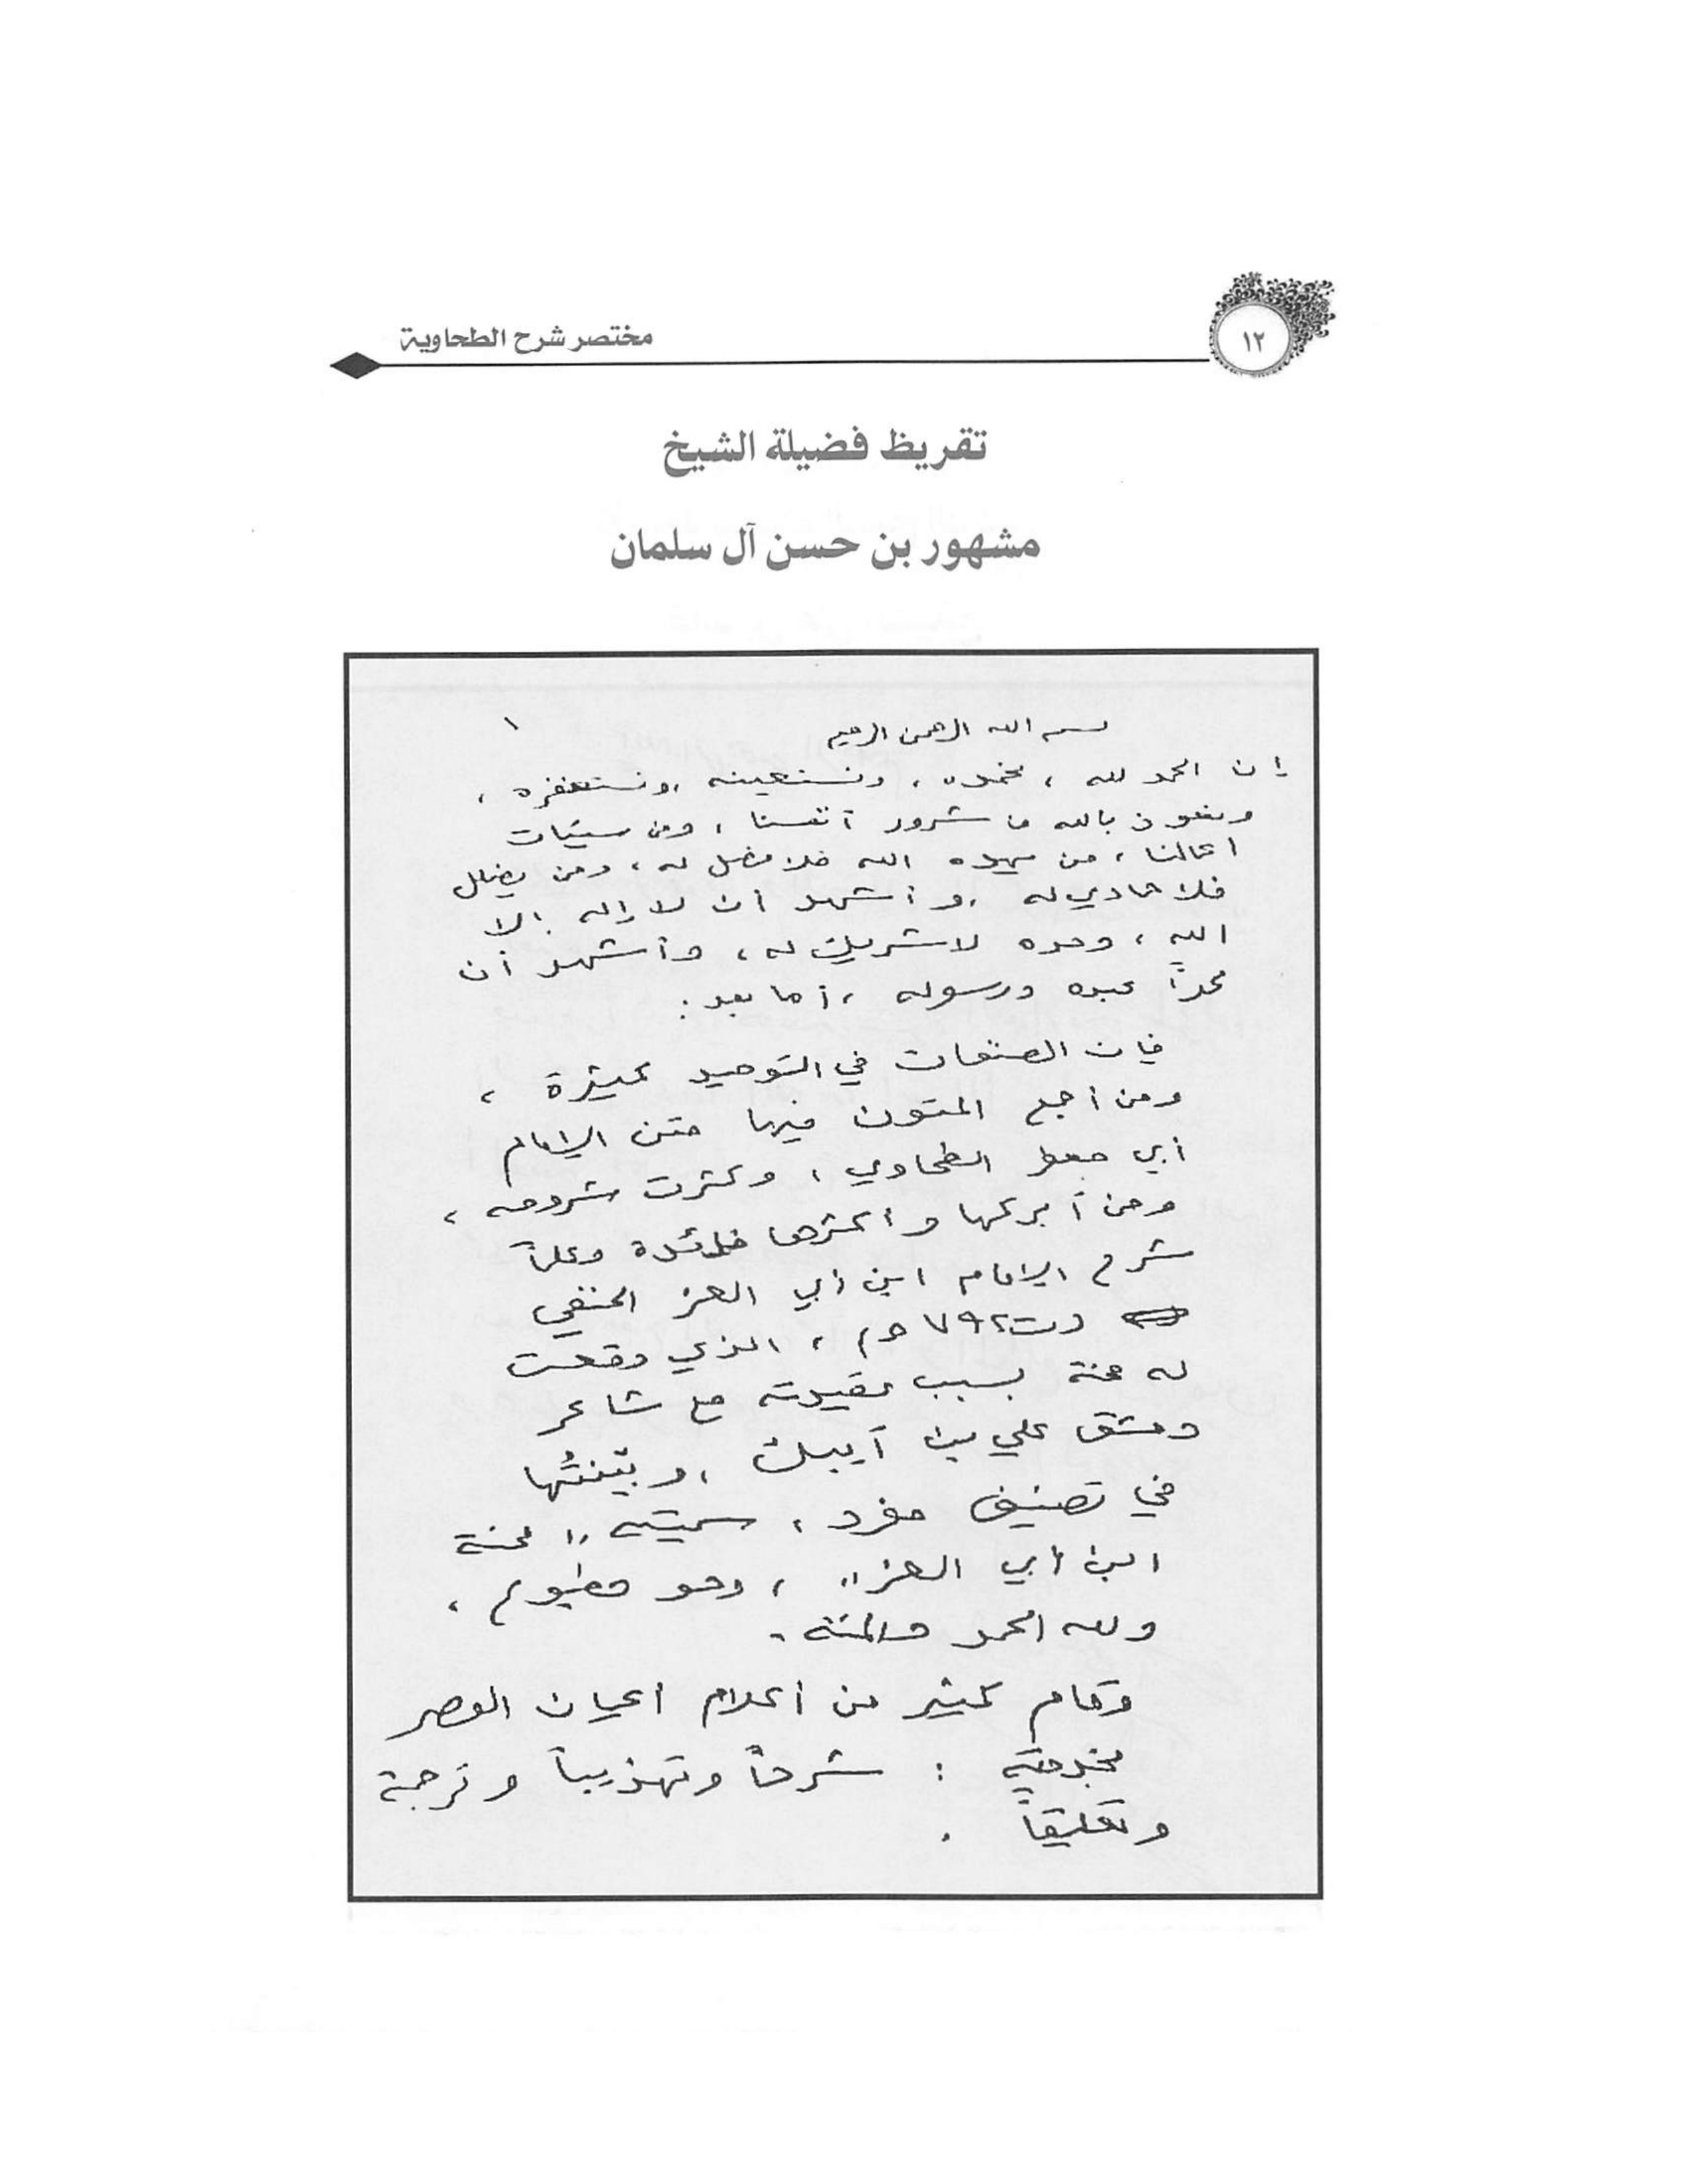 ١٢
مختصر شرح الطحاوية
تقريظ فضيلة الشيخ
مشهور بن حسن آل سلمان
١
بسم الله الرحمن الرحيم
إن الحمد لله ، نحمده ، ونستعينه ، ونستغفره ،
ونعوذ بالله من شرور أنفسنا ، ومن سيئات
أعمالنا ، من يهده الله فلا مضل له ، ومن يضلل
فلا هادي له ، وأشهد أن لا إله إلا
الله ، وحده لا شريك له ، وأشهد أن
محمداً عبده ورسوله ، أما بعد :
فإن المصنفات في التوحيد كثيرة ،
ومن أجمع المتون فيها متن الإمام
أبي جعفر الطحاوي ، وكثرت شروحه ،
ومن أبركها وأكثرها فائدة وعلماً
شرح الإمام ابن أبي العز الحنفي
(ت ٧٩٢ هـ) ، الذي وقعت
له محنة بسبب عقيدته مع شاعر
دمشق علي بن أيبك ، وبيّنتُها
في تصنيف مفرد ، سميته " محنة
ابن أبي العز " ، وهو مطبوع ،
ولله الحمد والمنّة .
وقام كثير من أعلام أعيان العصر
بخدمته : شرحاً وتهذيباً وترجمة
وتعليقاً .